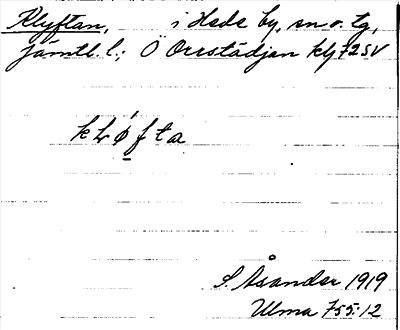 Klyftan, i Hede by, sn o. tg,
Jämtl. l.; Ö Orrstädjan kbl 72 SV
kLǿ̱fta
S. Åsander 1919
Ulma 755:12